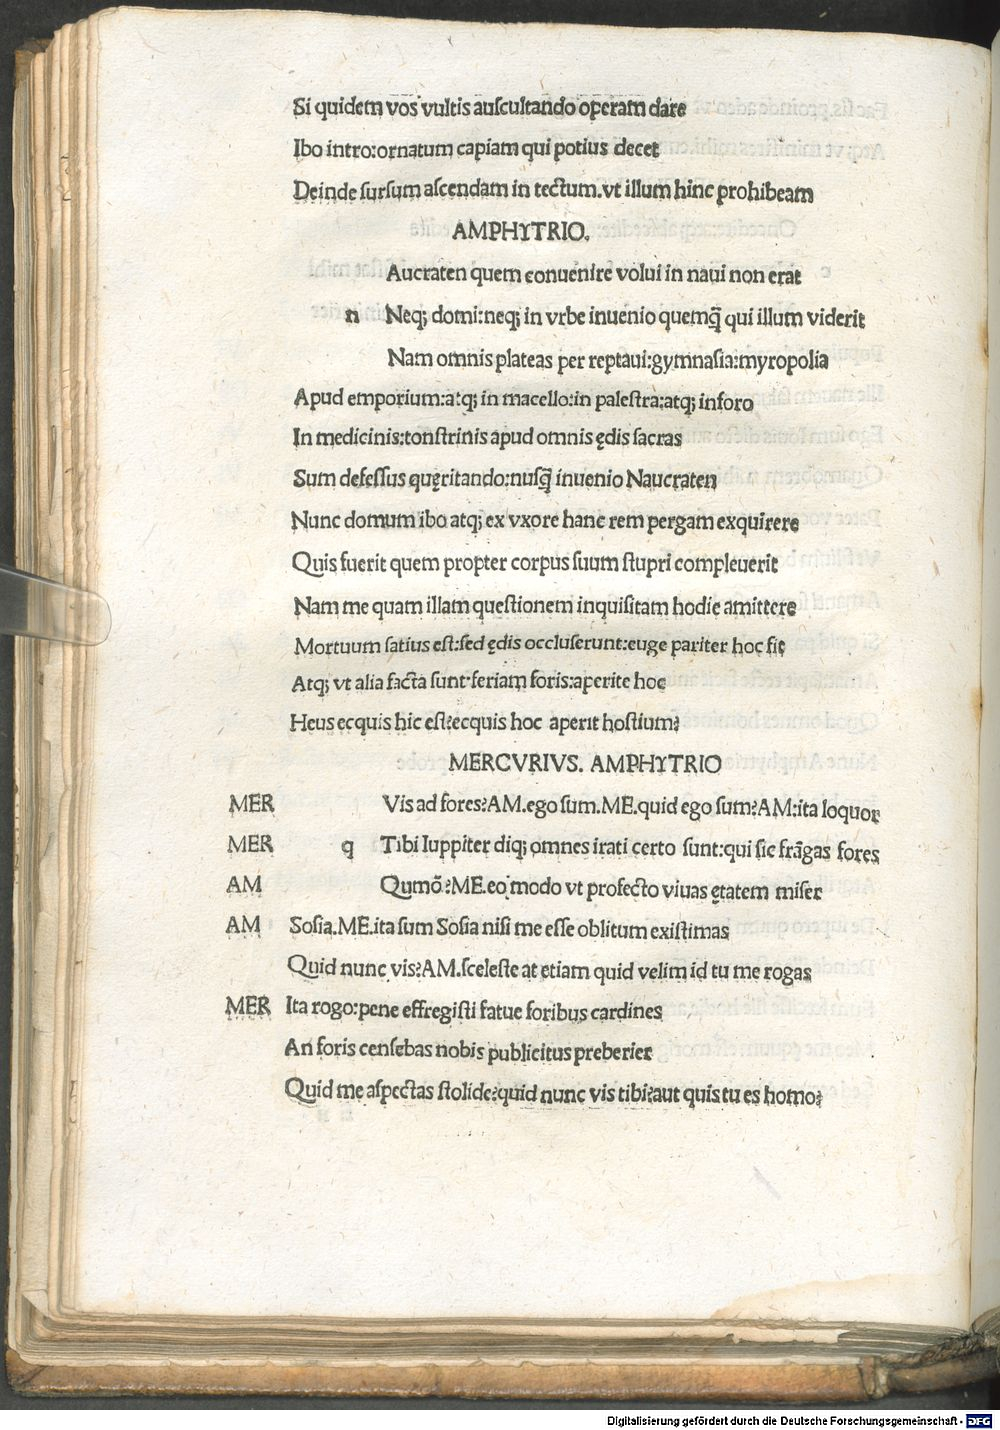 Si quidem vos vultis auſcultando operam dare
Ibo intro:ornatum capiam qui potius decet
Deinde ſurſum aſcendam in tectum.vt illum hinc prohibeam
AMPHYTRIO.
Aucraten quem conuenire volui in naui non erat
n Neq; domi:neq; in vrbe inuenio quemq̃ qui illum viderit
Nam omnis plateas per reptaui:gymnaſia:myropolia
Apud emporium:atq; in macello:in paleſtra:atq; inforo
In medicinis:tonſtrinis apud omnis ędis ſacras
Sum defeſſus quęritando:nuſq̃ inuenio Naucraten
Nunc domum ibo atq; ex vxore hanc rem pergam exquirere
Quis fuerit quem propter corpus ſuum ſtupri compleuerit
Nam me quam illam queſtionem inquiſitam hodie amittere
Mortuum ſatius eſt:ſed ędis occluſerunt:euge pariter hoc fit
Atq; vt alia facta ſunt·feriam foris:aperite hoc
Heus ecquis hic eſt?ecquis hoc aperit hoſtium?
MERCVRIVS. AMPHYTRIO
MER Vis ad fores?AM.ego ſum.ME.quid ego ſum?AM:ita loquor
MER q Tibi Iuppiter diq; omnes irati certo ſunt:qui ſic frãgas fores
AM Qumõ?ME.eo modo vt profecto viuas ętatem miſer
AM Soſia.ME.ita ſum Soſia niſi me eſſe oblitum exiſtimas
Quid nunc vis?AM.ſceleſte at etiam quid velim id tu me rogas
MER Ita rogo:pene effregiſti fatue foribus cardines
An foris cenſebas nobis publicitus preberier
Quid me aſpectas ſtolide?quid nunc vis tibi?aut quis tu es homo?
Digitalisierung gefördert durch die Deutsche Forschungsgemeinschaft - DFG